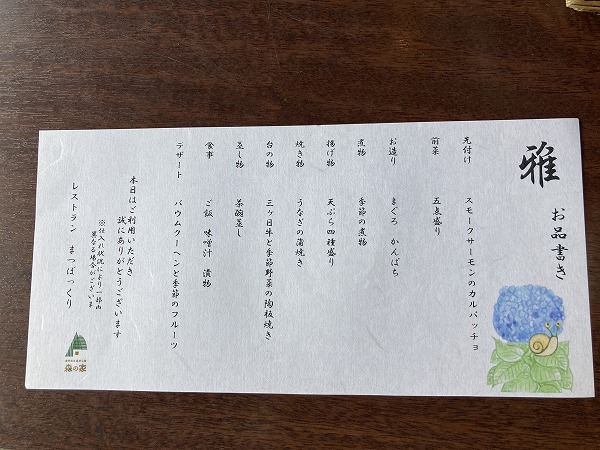 雅
お品書き
先付け　スモークサーモンのカルパッチョ
前菜　五点盛り
お造り　まぐろ　かんぱち
煮物　季節の煮物
揚げ物　天ぷら四種盛り
焼き物　うなぎの蒲焼き
台の物　三ヶ日牛と季節野菜の陶板焼き
蒸し物　茶碗蒸し
食事　ご飯　味噌汁　漬物
デザート　バウムクーヘンと季節のフルーツ
本日はご利用いただき
誠にありがとうございます
※仕入れ状況により一部内
異なる場合がございま
レストラン　まつぼっくり
森の家